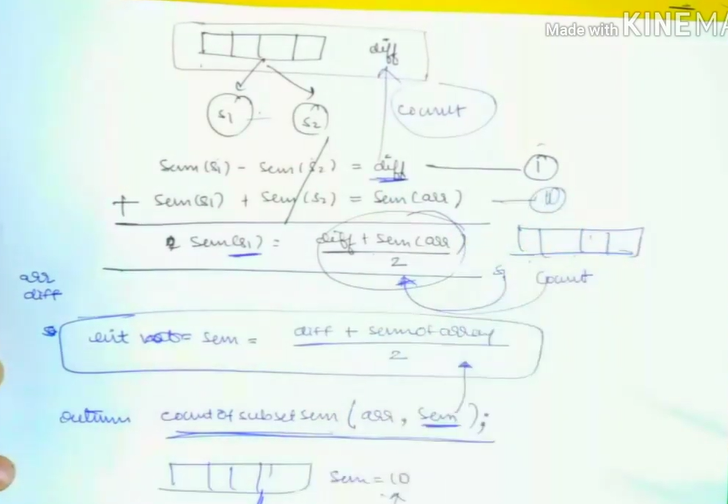 Made with KINEMA
diff
count
S1 S2
Sum(S1) - Sum(S2) = diff — 1
+ Sum(S1) + Sum(S2) = Sum(arr)
2 Sum(S1) = diff + Sum(arr) / 2
S1
Count
arr
diff
int = Sum = diff + Sum of array / 2
return count of subset sum (arr, sum);
Sum = 10